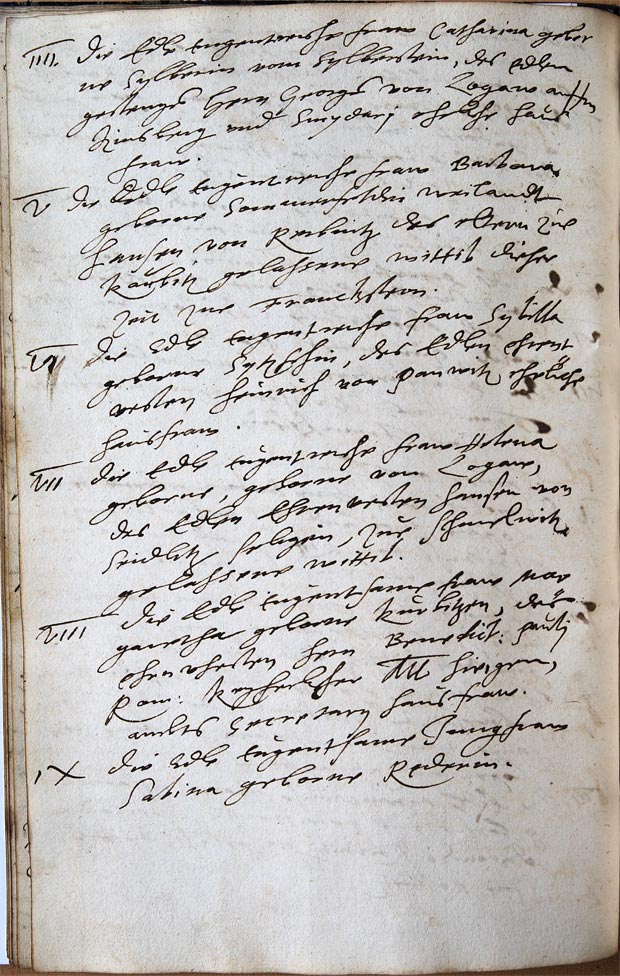 IIII. Die Edle tugentreiche fraw Catharina gebor
ne Sylberin vom Sylberstein, des Edlen
gestrengs Herrn Georgs von Logaw auff
Kinsberg und ehliche haus
fraw.
V Die Edle tugentreiche fraw Barbara
geborne Sommerfeldin weilandt
Hansen von Reibnitz des eltern zue
Kaubitz gelassene wittib dieser
Zeit zue Franckstein.
VI Die Edle tugentreiche fraw Sybilla
geborne des Edlen ehrent
vesten Heinrich von Panwitz ehrliche
hausfraw.
VII Die Edle tugentreiche fraw Helena
geborne, geborne von Logaw,
des Edlen Ehrenvesten Hansen von
Seidlitz seligen, zue Schmelwitz
gelassene wittib.
VIII Die Edle tugentsame fraw Mar
garetha geborne Kurbitzen, des
ehrnvhesten herrn Benedict: Pauli
Rom: Keyserlicher Mtt
ambts Secretary hausfraw.
IX Die Edle tugentsame Jungfraw
Sabina geborne Rederin.